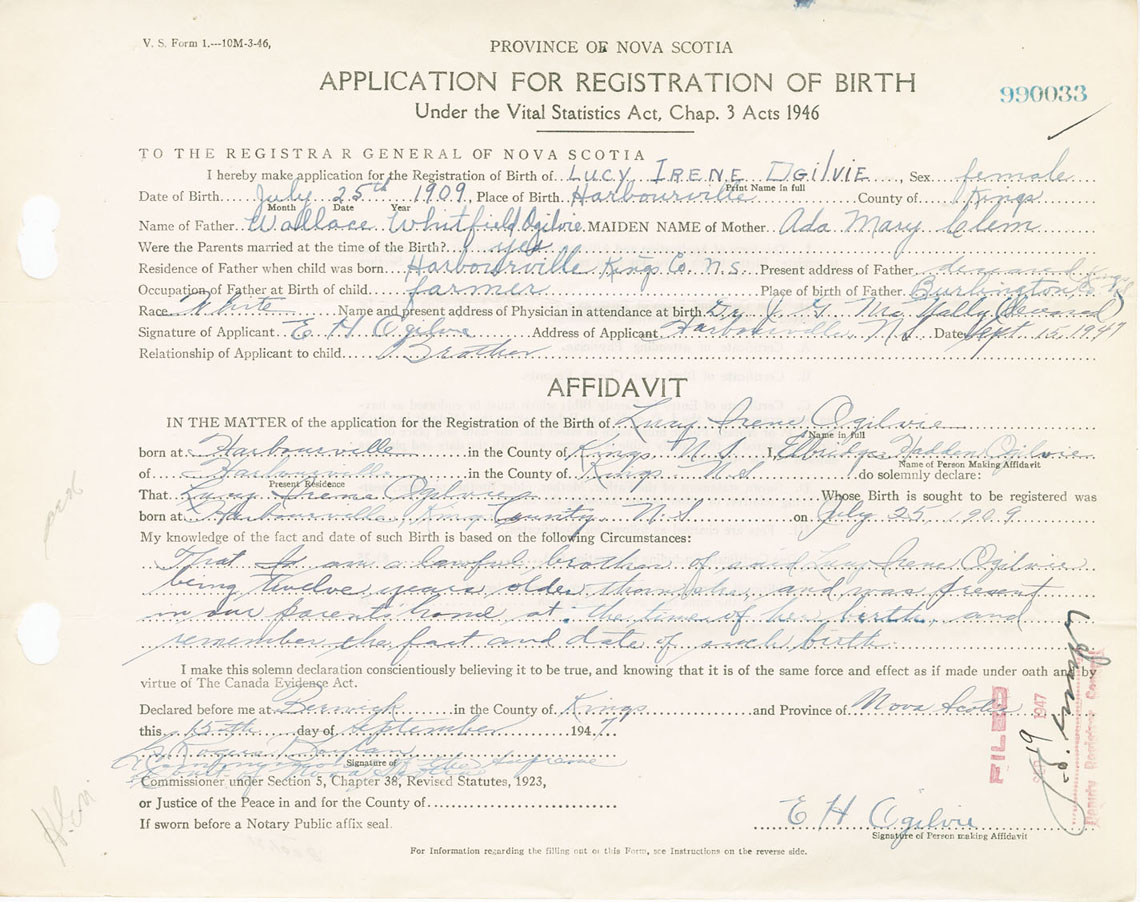 V. S. Form 1.—10M-3-46,
PROVINCE OF NOVA SCOTIA
APPLICATION FOR REGISTRATION OF BIRTH
990033
Under the Vital Statistics Act, Chap. 3 Acts 1946
TO THE REGISTRAR GENERAL OF NOVA SCOTIA
I hereby make application for the Registration of Birth of LUCY IRENE OGILVIE, Sex female
Print Name in full
Date of Birth July 25th 1909, Place of Birth Harbourville County of Kings
Month Date Year
Name of Father Wallace Whitfield Ogilvie MAIDEN NAME of Mother Ada Mary Clem
Were the Parents married at the time of the Birth? yes
Residence of Father when child was born Harbourville Kings Co. N.S. Present address of Father deceased
Occupation of Father at Birth of child farmer Place of birth of Father Burlington
Race White Name and present address of Physician in attendance at birth Dr. J. (deceased)
Signature of Applicant E H Ogilvie Address of Applicant Harbourville N.S. Date Sept. 15, 1947
Relationship of Applicant to child Brother
AFFIDAVIT
IN THE MATTER of the application for the Registration of the Birth of Lucy Irene Ogilvie
Name in full
born at Harbourville in the County of Kings N.S I, Elbridge Hadden Ogilvie
Name of Person Making Affidavit
of Harbourville in the County of Kings N.S do solemnly declare:
Present Residence
That Lucy Irene Ogilvie Whose Birth is sought to be registered was
born at Harbourville, King County N.S on July 25, 1909
My knowledge of the fact and date of such Birth is based on the following Circumstances:
That I am a lawful brother of said Lucy Irene Ogilvie
being twelve years older than she, and was present
in our parents home at the time of her birth and
remember the fact and date of such birth.
I make this solemn declaration conscientiously believing it to be true, and knowing that it is of the same force and effect as if made under oath and by
virtue of The Canada Evidence Act.
Declared before me at Berwick in the County of Kings and Province of Nova Scotia
this 15th day of September 1947.
Signature of
Commissioner under Section 5, Chapter 38, Revised Statutes, 1923,
or Justice of the Peace in and for the County of
If sworn before a Notary Public affix seal.
E H Ogilvie
Signature of Person making Affidavit
For Information regarding the filling out of this Form, see Instructions on the reverse side.
FILED
1947
Deputy Registrar General